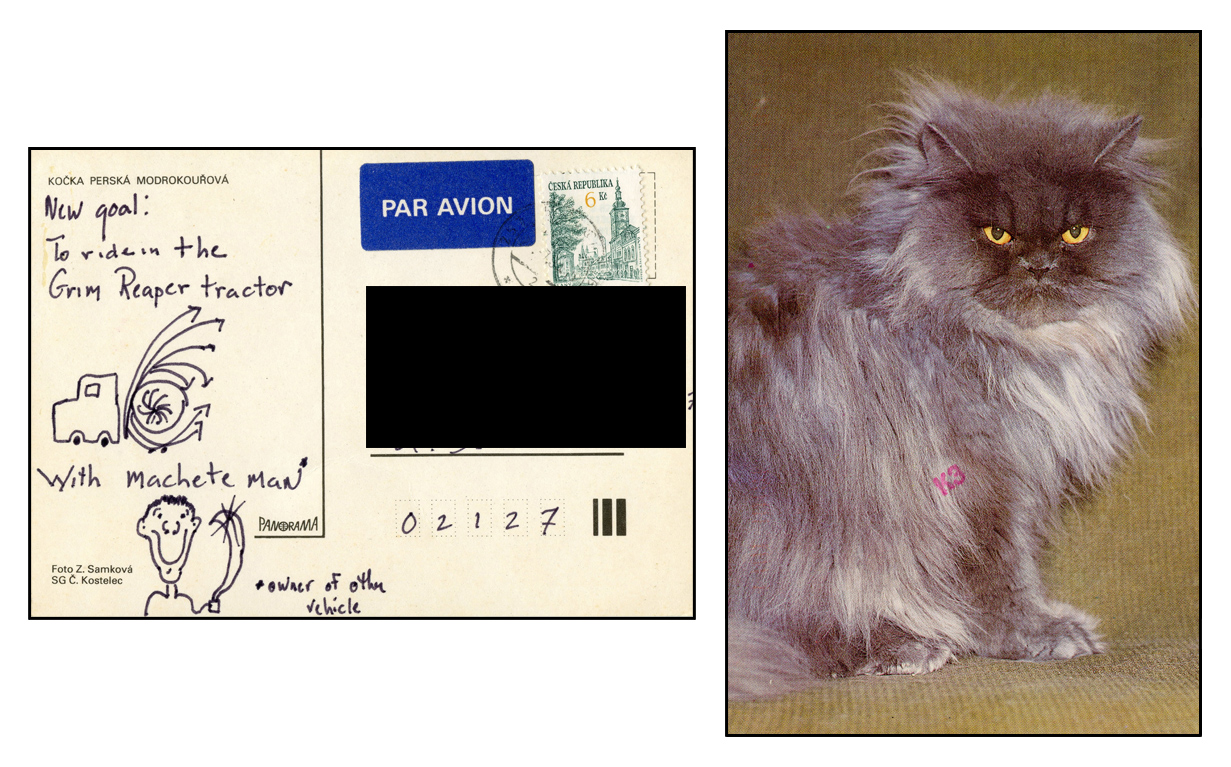 KOČKA PERSKÁ MODROKOUŘOVÁ
New goal:
To ride in the
Grim Reaper tractor
With machete man*
PANORAMA
Foto Z. Samková
SG Č. Kostelec
*owner of other
vehicle
PAR AVION
ČESKÁ REPUBLIKA
6 Kč
02127
K3